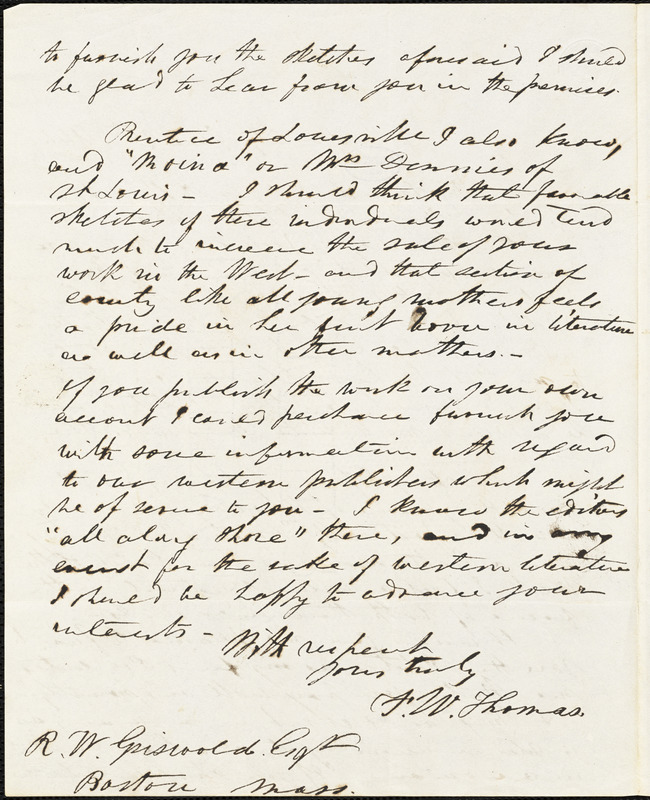 to furnish you the sketches aforesaid I should
be glad to hear from you in the premises.
Prentice of Louisville I also know,
and "Moina" or Mrs Dinnies of
St Louis – I should think that favorable
sketches of these individuals would tend
much to increase the sale of your
work in the West – and that section of
county like all young mothers feels
a pride in her first born in literature
as well as in other matters. –
If you publish the work on your own
account I could perchance furnish you
with some information with regard
to our western publishers which might
be of service to you – I know the editors
"all along shore" there, and in any
event for the sake of western literature
I should be happy to advance your
interests –
With respect
yours truly
F. W. Thomas.
R. W. Griswold. Esqr
Boston Mass.